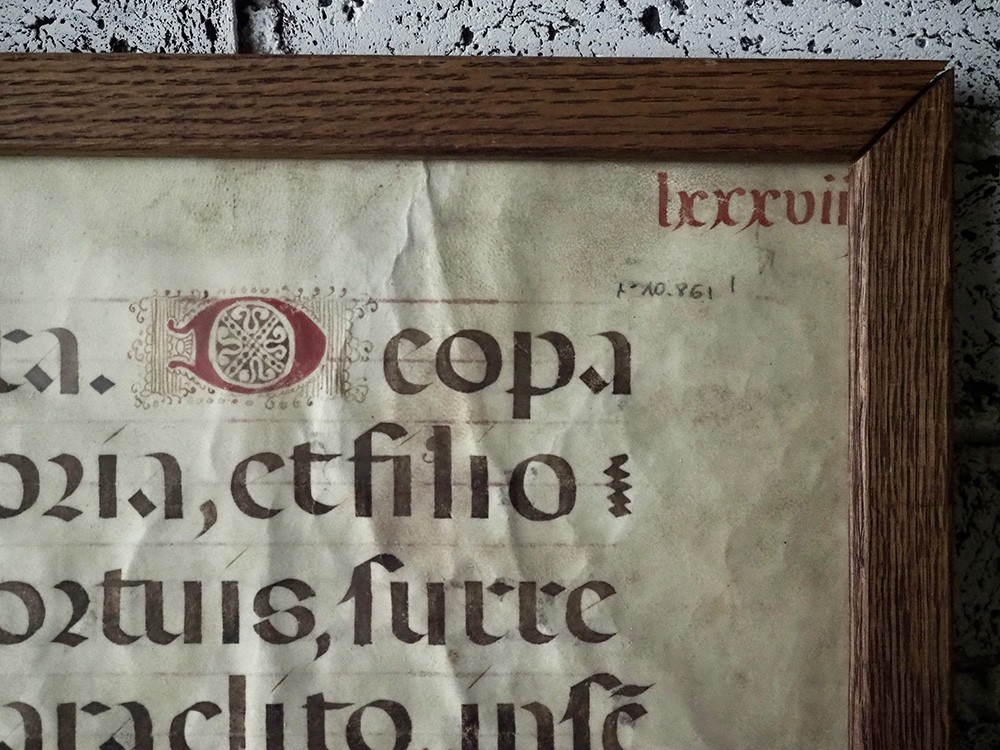 lxxxvii
10.861
ca. Deo pa
oria, et filio
ortuis, ſurre
araclito, in ſē